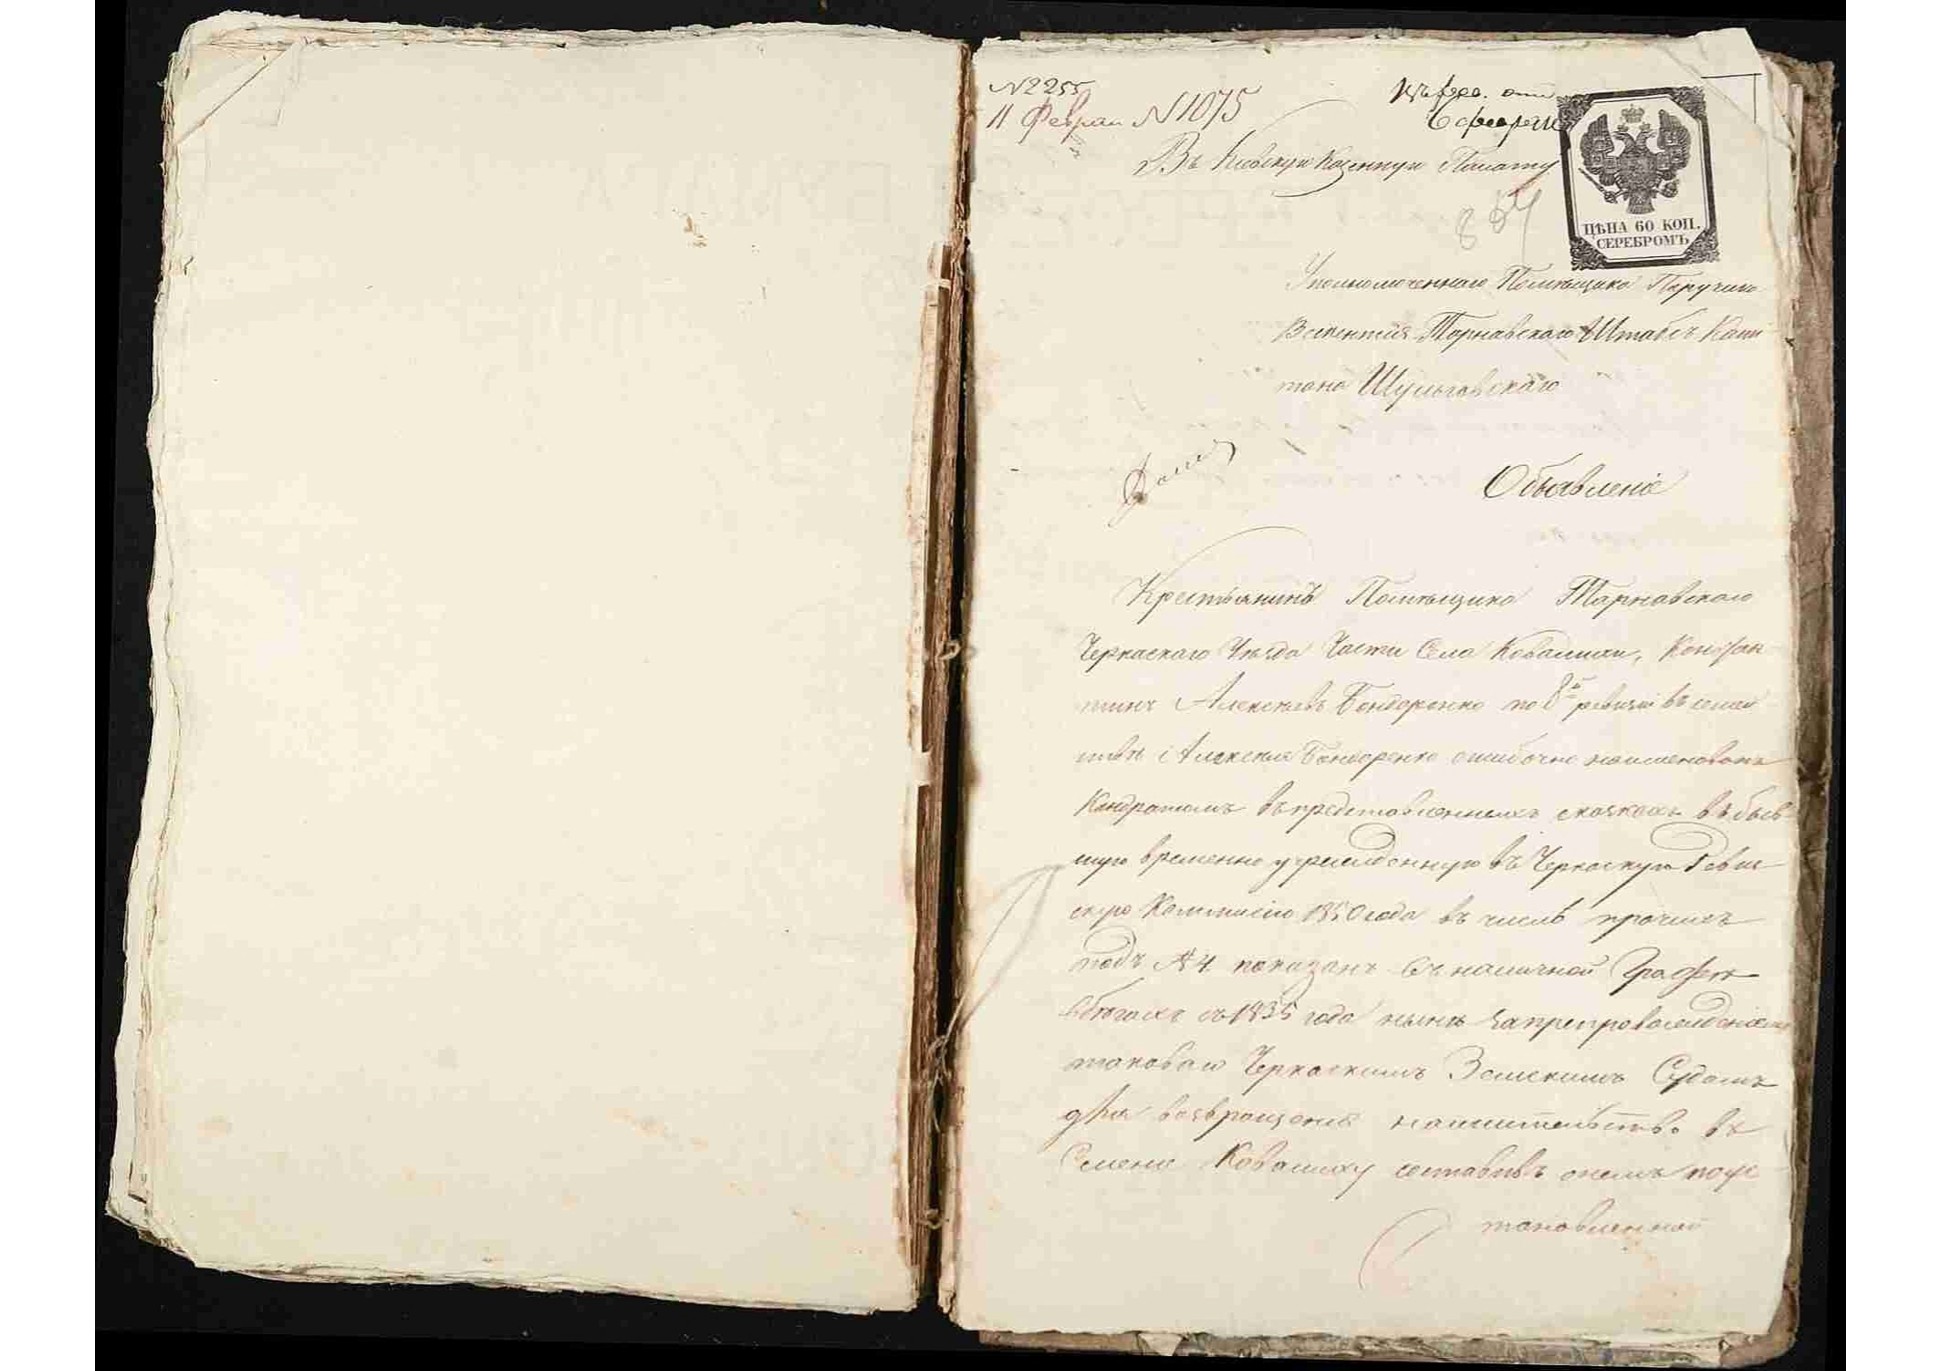 № 2255
11 Феврал № 1075
6 феврал
Въ Кіевскую Казенную Палату
854
ЦѢНА 60 КОП.
СЕРЕБРОМЪ
Уполномоченнаго Помѣщика Поручика
Викентія Тарнавскаго Штабсъ Капи
тана Шульговскаго
Объявленіе
Крестьянинъ Помѣщика Тарнавскаго
Черкаскаго Уѣзда Части Села Ковалихи, Констан
тинъ Алексѣевъ Бондаренко по 8й ревизіи въ семей
ствѣ Алексѣя Бондаренко ошибочно наименованъ
Кондратомъ въ представленныхъ сказкахъ въ быв
шую временно учрежденную въ Черкаскую Реви
скую Коммисію 1850 года въ числѣ прочихъ
подъ № 4 показанъ въ наличной Графѣ
въ бѣгахъ съ 1835 года нынѣ запрепровожденіемъ
таковаго Черкаскимъ Земскимъ Судомъ
для возвращенія на жительство въ
Имѣніе Ковалиху составивъ онемъ поус
тановленной